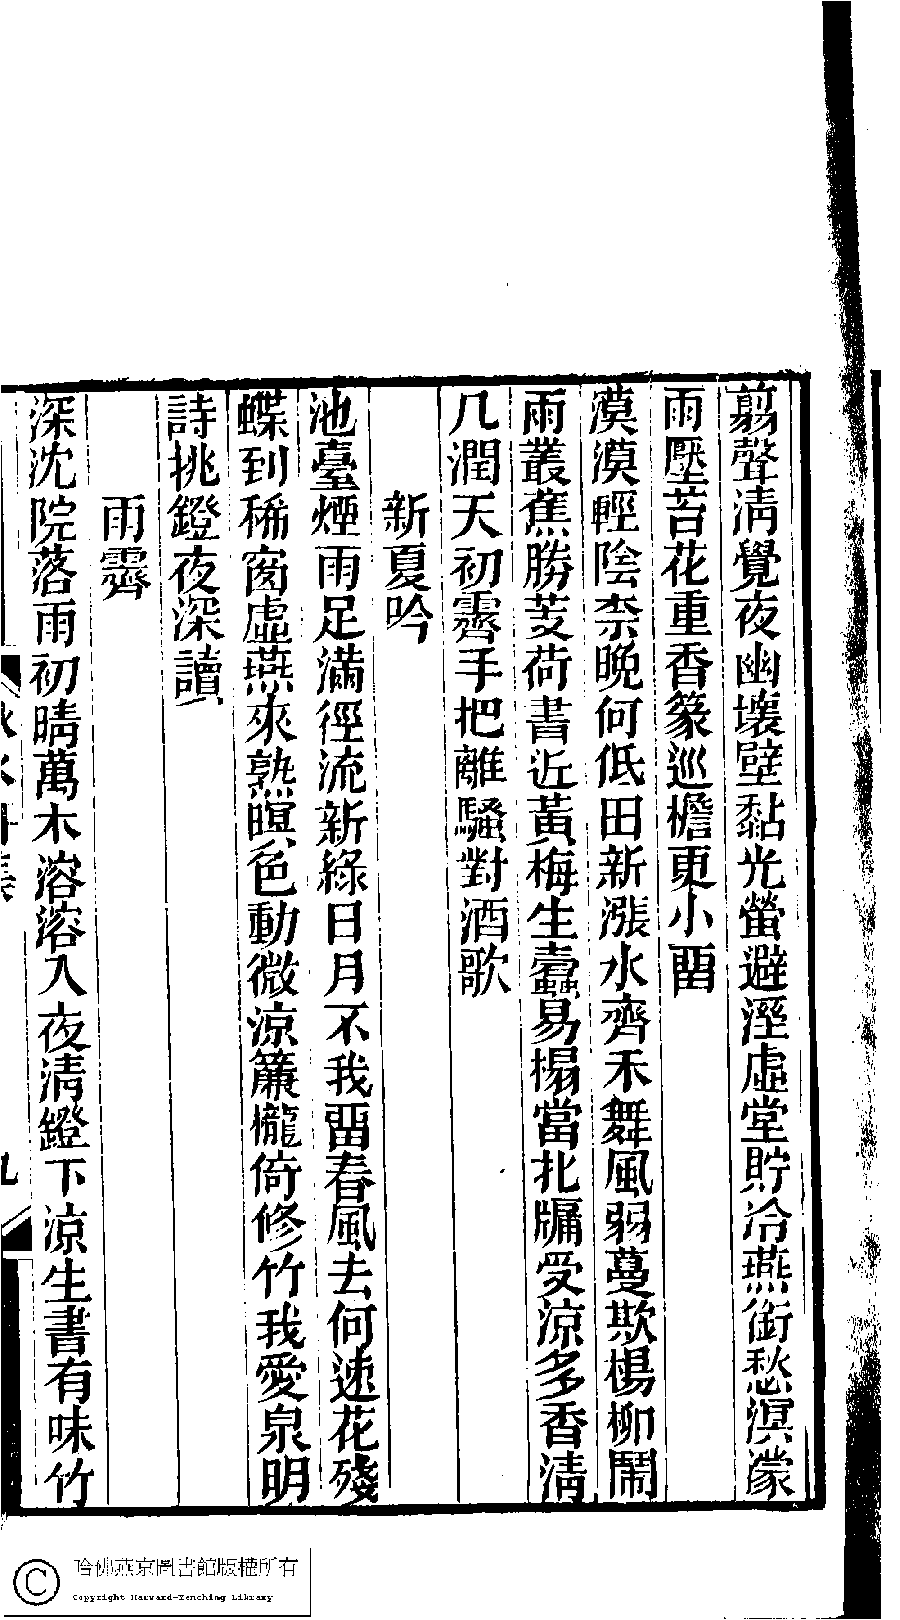 翦聲清覺夜幽壞壁黏光螢避溼虛堂貯冷燕銜愁溟濛
雨壓苔花重香篆巡檐更小畱
漠漠輕陰柰晚何低田新漲水齊禾舞風弱蔓欺楊柳鬧
雨叢蕉勝芰荷書近黃梅生蠹易榻當北牖受涼多香清
几潤天初霽手把離騷對酒歌
新夏吟
池臺煙雨足滿徑流新綠日月不我畱春風去何速花殘
蝶到稀窗虛燕來熟暝色動微涼簾櫳倚修竹我愛泉明
詩挑鐙夜深讀
雨霽
深沈院落雨初晴萬木溶溶入夜清鐙下涼生書有味竹
集
九
哈佛燕京圖書館版權所有
Copyright Harvard-Yenching Library